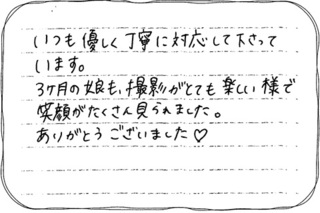 いつも優しく丁寧に対応して下さって
います。
3ヶ月の娘も、撮影がとても楽しい様で
笑顔がたくさん見られました。
ありがとうございました♡